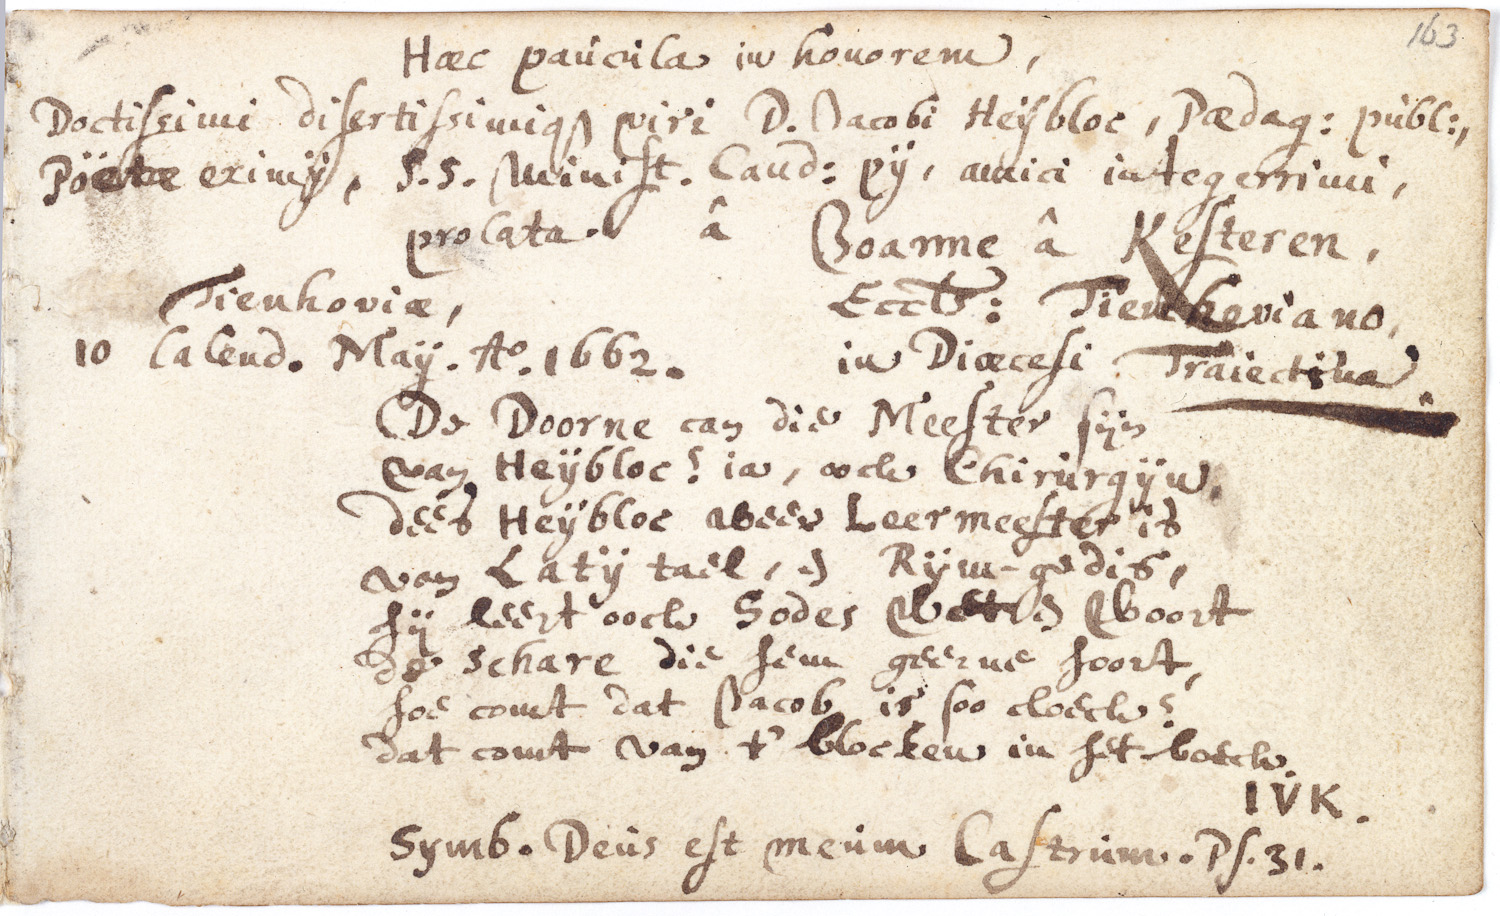 163
Hæc paucula in honorem,
Doctissimi disertissimiq3 viri D. Jacobi Heÿbloc, Pædag: publ:,
Pöetæ eximÿ, S.S. Minist. Cand: pÿ, amici integerrimi,
prolata. â Joanne â Kesteren,
Tienhoviæ, Eccls: Tienhoviano,
10 Calend. Maÿ. Aº. 1662. in Diœcesi Traiectina.
De Doorne can die Meester sijn
van Heÿbloc? ia, oock Chirurgÿn,
dees Heÿbloc weer Leermeester is
van Latÿ tael, en Rÿm-gedis,
hÿ leert oock Godes Wet en Woort
de schare die hem geerne hoort,
hoe comt dat Jacob is soo cloeck?
dat comt van t' blocken in het boeck.
IVK.
Symb. Deus est meum Castrum. Ps. 31.